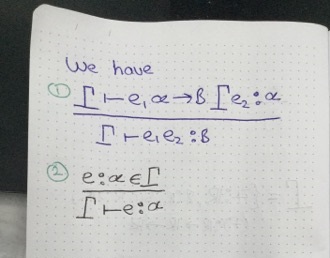 We have
① Γ ⊢ e₁ α → β Γ e₂ : α
Γ ⊢ e₁e₂ : β
② e : α ∈ Γ
Γ ⊢ e : α